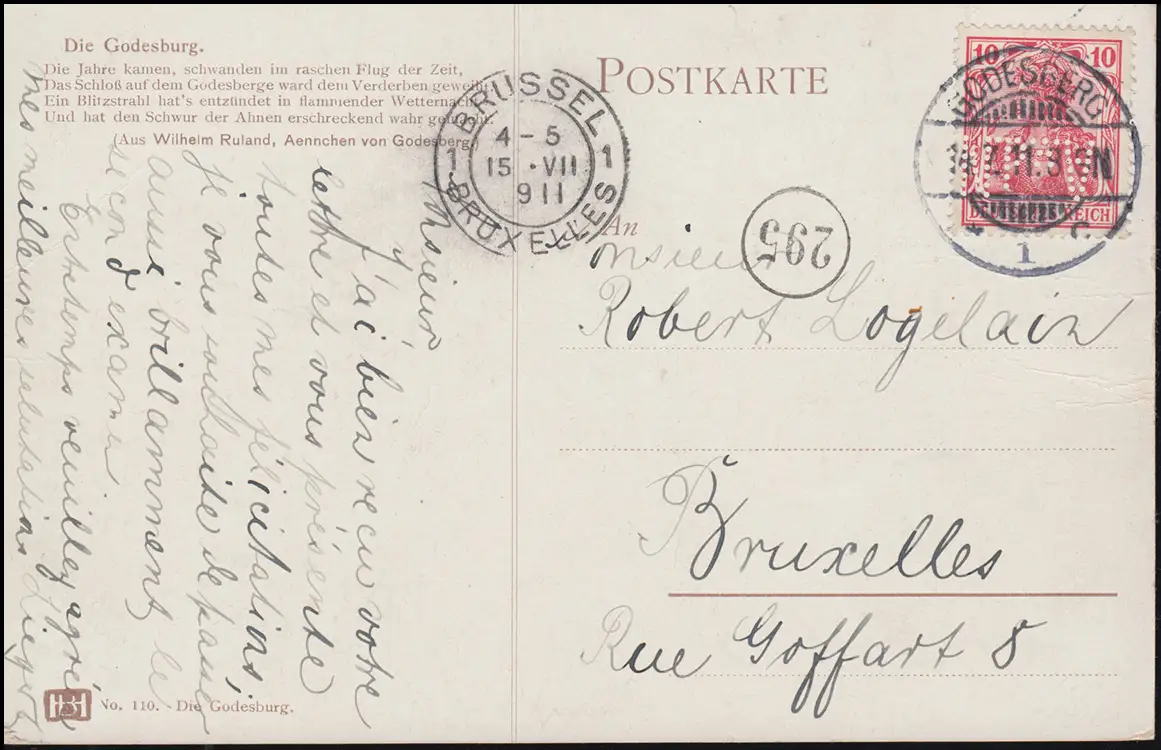 Die Godesburg.
Die Jahre kamen, schwanden im raschen Flug der Zeit,
Das Schloß auf dem Godesberge ward dem Verderben geweiht
Ein Blitzstrahl hat's entzündet in flammender Wetternacht
Und hat den Schwur der Ahnen erschreckend wahr gemacht.
(Aus Wilhelm Ruland, Aennchen von Godesberg.)
Msieur,
J'ai bien recu votre
lettre et vous présente
toutes mes félicitations,
je vous souhaite de passer
aussi brillamment le
second examen
Entretemps veuillez agréer
mes meilleures salutations
HBH
No. 110. Die Godesburg.
BRÜSSEL
1 4-5 1
15 · VII
911
BRUXELLES
POSTKARTE
10 10
DEUTSCHES REICH
GODESBERG
11.3
1
295
An
Msieur
Robert Logelain
Bruxelles
Rue Goffart 8